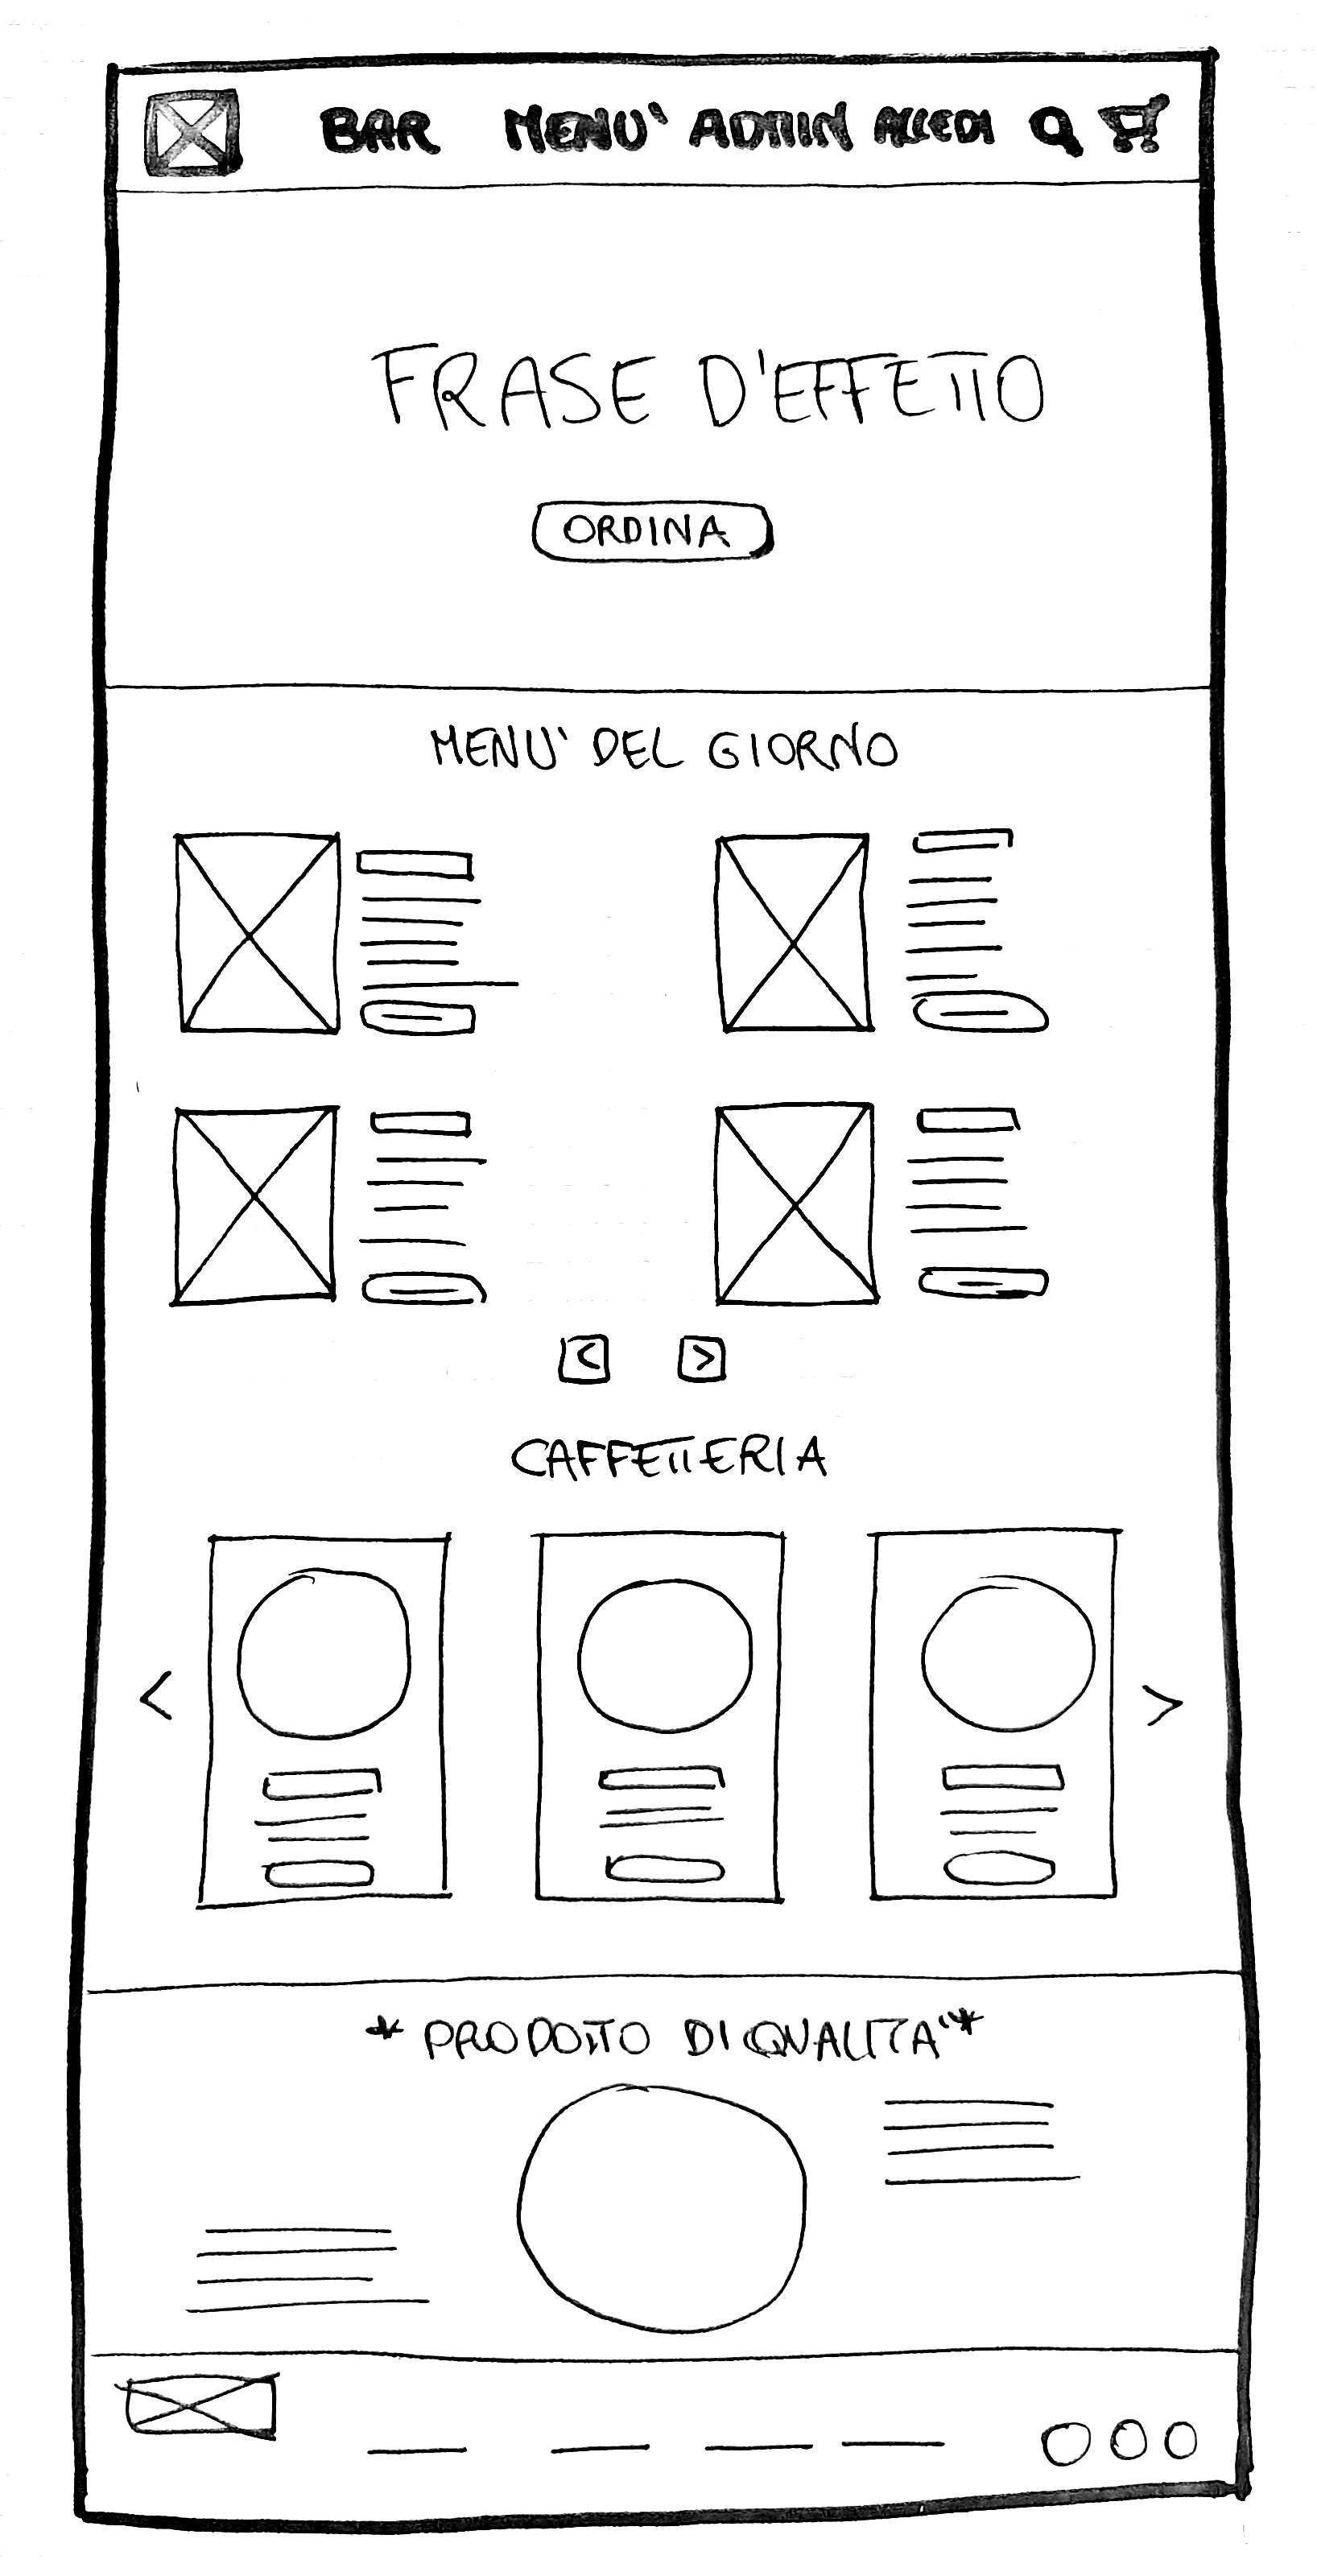 BAR MENU' ADMIN ACCEDI
FRASE D'EFFETTO
ORDINA
MENU' DEL GIORNO
< >
CAFFETTERIA
< >
* PRODOTTO DI QUALITA' *